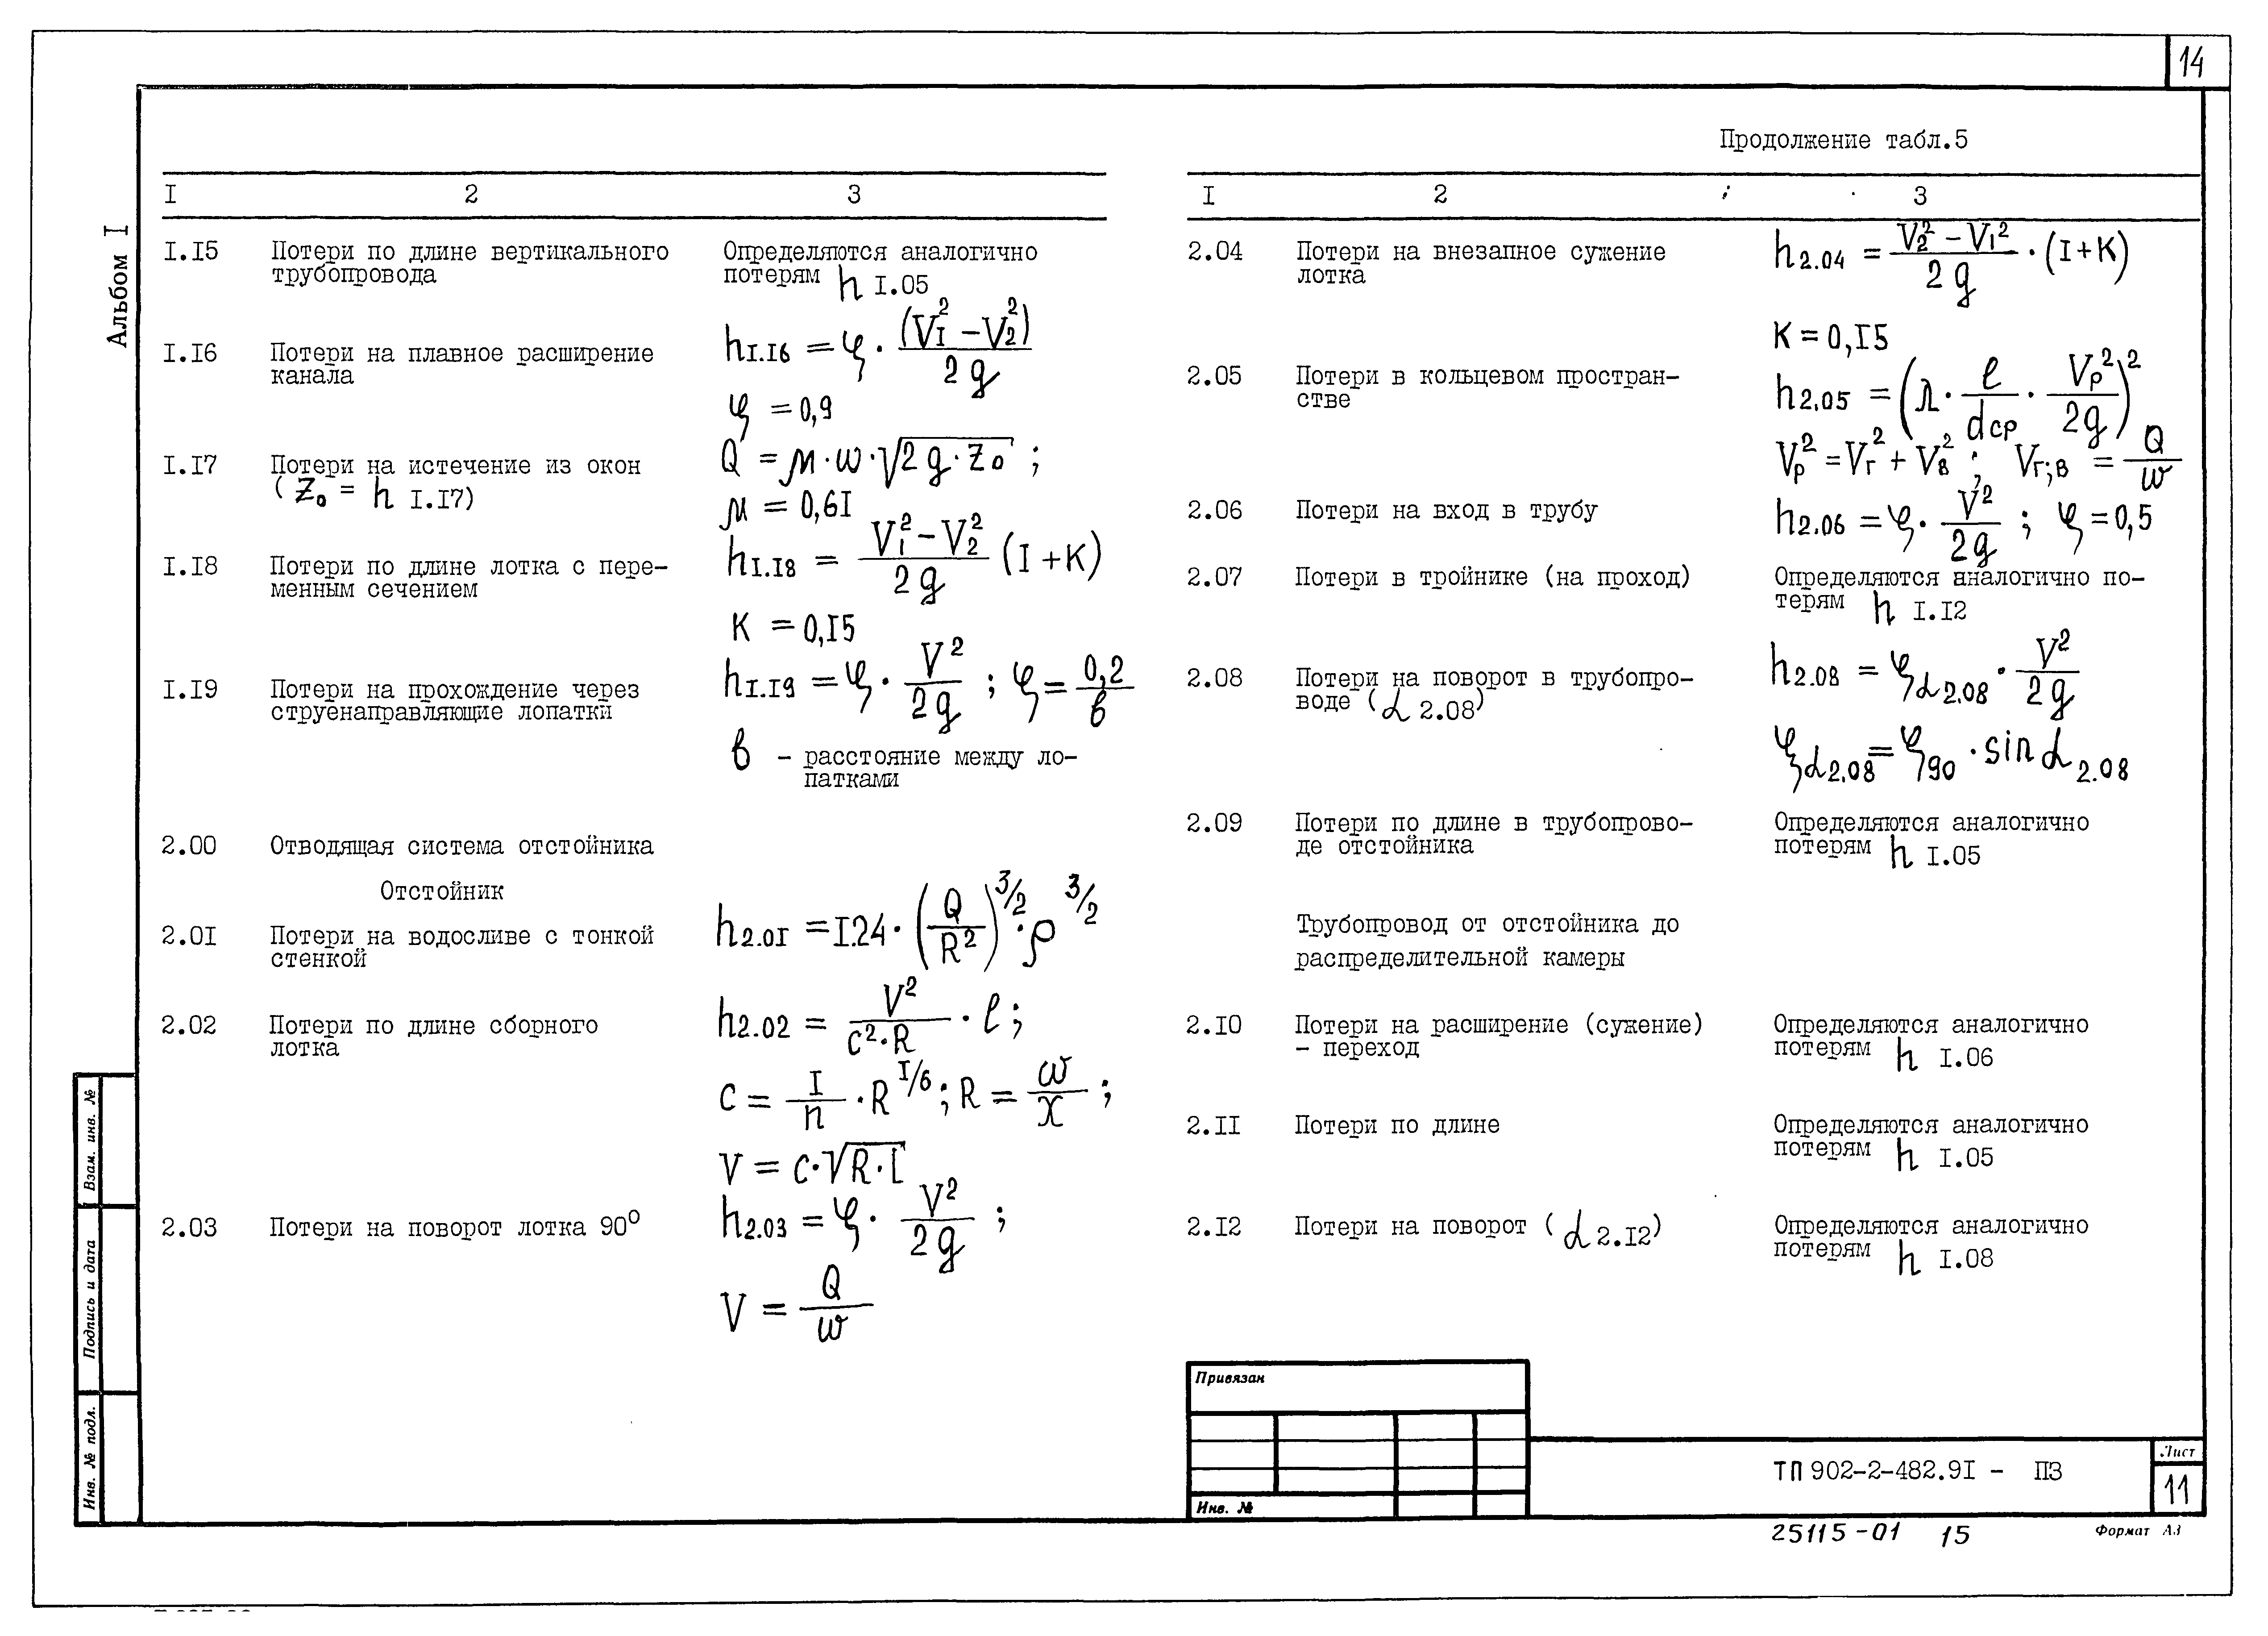 14
Продолжение табл.5
Альбом I
I 2 3
I.I5 Потери по длине вертикального трубопровода Определяются аналогично потерям h I.05
I.I6 Потери на плавное расширение канала h I.I6 = ξ · (V₁² − V₂²) / 2g
ξ = 0,9
I.I7 Потери на истечение из окон (Z₀ = h I.I7) Q = μ · w · √(2g · Z₀) ;
μ = 0,6I
I.I8 Потери по длине лотка с пере-
менным сечением h I.I8 = (V₁² − V₂²) / 2g (I + K)
K = 0,I5
I.I9 Потери на прохождение через струенаправляющие лопатки h I.I9 = ξ · V² / 2g ; ξ = 0,2 / в
в – расстояние между ло-
патками
2.00 Отводящая система отстойника
Отстойник
2.0I Потери на водосливе с тонкой стенкой h 2.0I = I.24 · (Q / R²)^3/2 · ρ^3/2
2.02 Потери по длине сборного лотка h 2.02 = V² / (c² · R) · ℓ ;
c = I / n · R^I/6 ; R = ω / x ;
V = c · √(R · I)
2.03 Потери на поворот лотка 90° h 2.03 = ξ · V² / 2g ;
V = Q / w
I 2 3
2.04 Потери на внезапное сужение лотка h 2.04 = (V₂² − V₁²) / 2g · (I + K)
K = 0,I5
2.05 Потери в кольцевом простран-
стве h 2.05 = (λ · ℓ / dср · Vр² / 2g)²
Vр² = Vг² + Vв² ; Vг;в = Q / w
2.06 Потери на вход в трубу h 2.06 = ξ · V² / 2g ; ξ = 0,5
2.07 Потери в тройнике (на проход) Определяются аналогично по-
терям h I.I2
2.08 Потери на поворот в трубопро-
воде (α 2.08) h 2.08 = ξ α 2.08 · V² / 2g
ξ α 2.08 = ξ 90 · sin α 2.08
2.09 Потери по длине в трубопрово-
де отстойника Определяются аналогично потерям h I.05
Трубопровод от отстойника до
распределительной камеры
2.I0 Потери на расширение (сужение)
– переход Определяются аналогично потерям h I.06
2.II Потери по длине Определяются аналогично потерям h I.05
2.I2 Потери на поворот (α 2.I2) Определяются аналогично потерям h I.08
Взам. инв. №
Подпись и дата
Инв. № подл.
Привязан
Инв. №
ТП 902-2-482.9I – ПЗ
Лист
11
25115-01 15
Формат А3